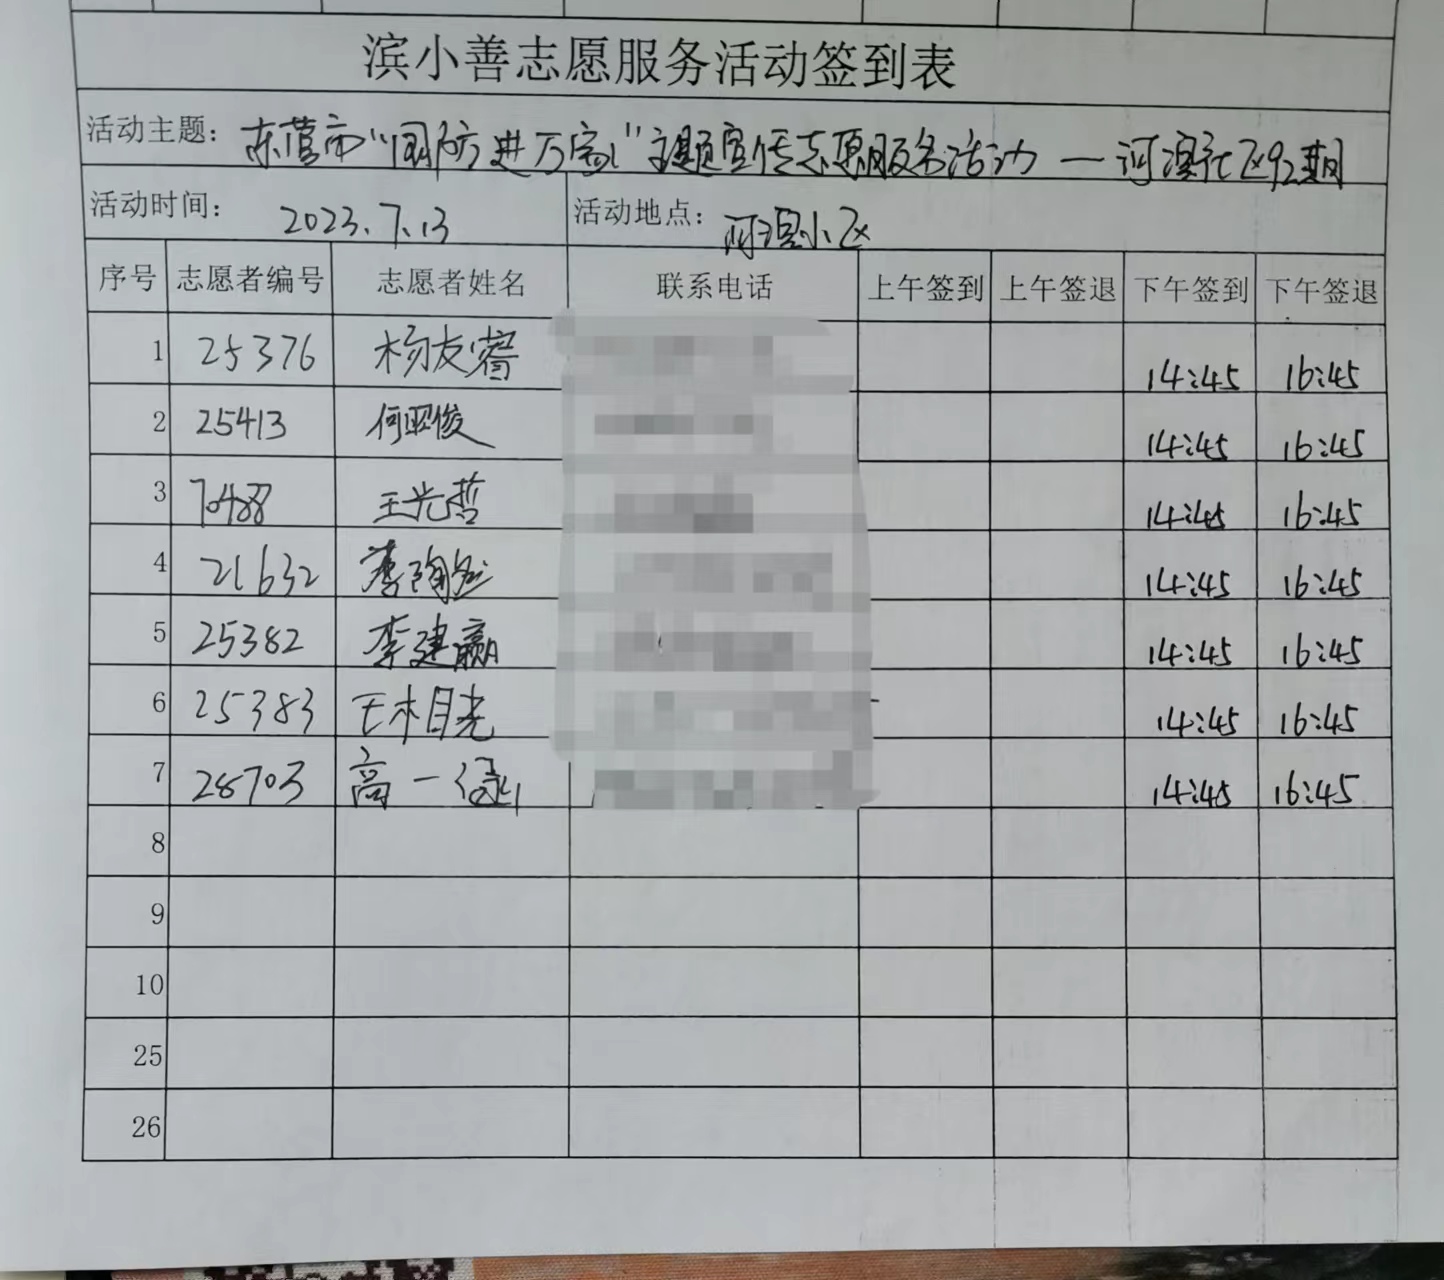 滨小善志愿服务活动签到表
活动主题: 东营市"国防进万家"主题宣传志愿服务活动 — 河滨社区92期
活动时间: 2023.7.13 活动地点: 河滨小区
序号 志愿者编号 志愿者姓名 联系电话 上午签到 上午签退 下午签到 下午签退
1 25376 杨友睿 14:45 16:45
2 25413 何昭俊 14:45 16:45
3 70488 王光哲 14:45 16:45
4 21632 14:45 16:45
5 25382 李建赢 14:45 16:45
6 25383 14:45 16:45
7 28703 高一 14:45 16:45
8
9
10
25
26